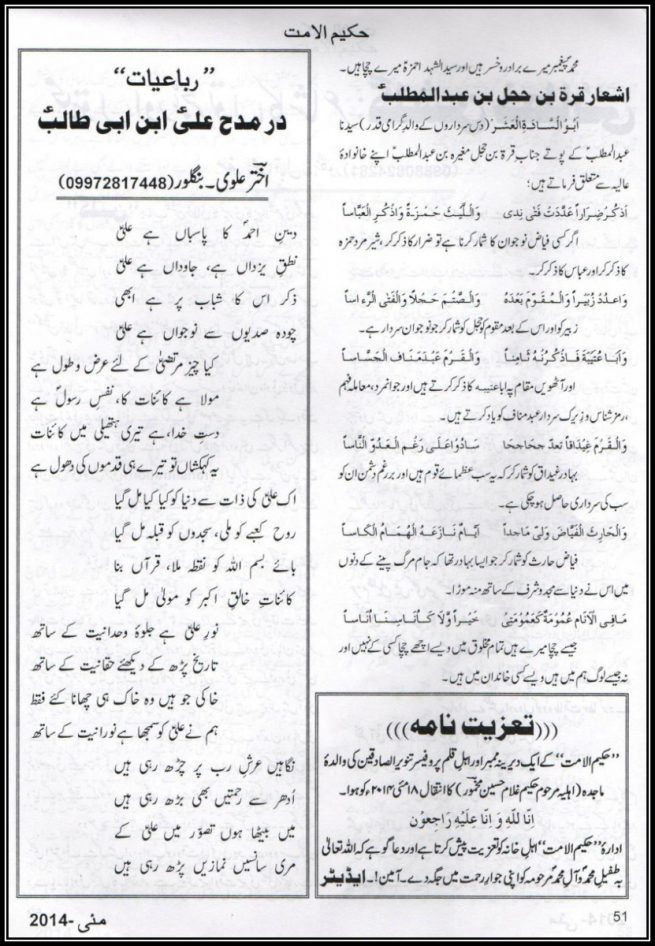 حکیم الامت
محمدؐ پیغمبر میرے برادر و خسر ہیں اور سید الشہداء حمزہؑ میرے چچا ہیں۔
اشعار قرة بن حجل بن عبدالمطلبؑ
اَبُو السَّادَةِ الْعَشَر (دس سرداروں کے والد گرامی قدر) سیدنا
عبدالمطلبؑ کے پوتے جناب قرة بن حجل مغیرہ بن عبدالمطلبؑ اپنے خانوادۂ
عالیہ سے متعلق فرماتے ہیں؛
اُذکُر ضِرَاراً عَدَّدتَ فَتٰی نِدٰی وَاللَّیثَ حَمزَۃَ وَاذکُرِ العَبَّاسَا
اگر کسی فیاض نوجوان کا شمار کرنا ہے تو ضرار کا ذکر کر، شیر مرد حمزہ
کا ذکر کر اور عباس کا ذکر کر۔
وَاعدُد زُبَیراً وَالمُقَوَّمَ بَعدَہُ وَالصَّنَمَ حَجلاً وَالفَتٰی الرَّءاسَا
زبیر کو اور اس کے بعد مقوم کو حجل کو شمار کر جو نوجوان سردار ہے۔
وَاَبَا عُتَیبَۃَ فَاذکُرَنہُ ثَامِناً وَالقَرمَ عَبدَ مَنَافِ الحَسَّاسَا
اور آٹھویں مقام پہ ابا عتیبہ کا ذکر کرتے ہیں اور جوانمرد، معاملہ فہم
، رمز شناس و زیرک سردار عبد مناف کو یاد کرتے ہیں۔
وَالقَرمَ غَیدَاقاً تعدّ جحاجحا سَادُوا عَلٰی رَغمِ العَدُوِّ النَّاسَا
بہادر غیداق کو شمار کر کہ یہ سب عظمائے قوم ہیں اور برغم دشمن ان کو
سب کی سرداری حاصل ہو چکی ہے۔
وَالحَارِثَ الفَیَّاضَ وَلّٰی مَاجِداً اَیَّامَ نَازَعَہُ الھُمَامُ الکَاسَا
فیاض حارث کو شمار کر جو ایسا بہادر تھا کہ جام مرگ پینے کے دنوں
میں اس نے دنیا سے مجد و شرف کے ساتھ منہ موڑا۔
مَا فِی الاَنَامِ عُمُومَۃٌ کَعُمُومَتِی خَیراً وَّلَا کَاُنَاسِنَا اُنَاسَا
جیسے چچا میرے ہیں تمام مخلوق میں ویسے اچھے چچا کسی کے نہیں اور
نہ جیسے لوگ ہم میں ہیں ویسے کسی خاندان میں ہیں۔
(((تعزیت نامہ)))
”حکیم الامت“ کے ایک دیرینہ ممبر اور اہل قلم پروفیسر تنویر الصادقین کی والدۂ
ماجدہ (اہلیہ مرحوم حکیم غلام حسین مخمور) کا انتقال ۱۸مئی ۲۰۱۴ کو ہوا۔
اِنَّا لِلّٰہِ وَ اِنَّا عَلَیْہِ رَاجِعُوْن
ادارۂ ”حکیم الامت“ اہل خانہ کو تعزیت پیش کرتا ہے اور دعا گو ہے کہ اللہ تعالٰی
بہ طفیل محمدؐ و آل محمدؑ مرحومہ کو اپنی جوار رحمت میں جگہ دے۔ آمین!۔ ایڈیٹر
”رباعیات“
در مدح علیؑ ابن ابی طالبؑ
اختر علوی۔ بنگلور (09972817448)
دینِ احمدؐ کا پاسباں ہے علیؑ
نطقِ یزداں ہے، جاوداں ہے علیؑ
ذکر اس کا شباب پر ہے ابھی
چودہ صدیوں سے نوجواں ہے علیؑ
کیا چیز مرتضیٰؑ کے لئے عرض و طول ہے
مولا ہے کائنات کا، نفسِ رسولؐ ہے
دستِ خدا، ہے تیری ہتھیلی میں کائنات
یہ کہکشاں تو تیرے ہی قدموں کی دھول ہے
اک علیؑ کی ذات سے دنیا کو کیا کیا مل گیا
روح کعبے کو ملی، سجدوں کو قبلہ مل گیا
بائے بسم اللہ کو نقطہ ملا، قرآں بنا
کائناتِ خالقِ اکبر کو مولیٰ مل گیا
نورِ علیؑ ہے جلوۂ وحدانیت کے ساتھ
تاریخ پڑھ کے دیکھئے حقانیت کے ساتھ
خاکی جو ہیں وہ خاک ہی چھانا کئے فقط
ہم نے علیؑ کو سمجھا ہے نورانیت کے ساتھ
نگاہیں عرشِ رب پر چڑھ رہی ہیں
اُدھر سے رحمتیں بھی بڑھ رہی ہیں
میں بیٹھا ہوں تصوّر میں علیؑ کے
مری سانسیں نمازیں پڑھ رہی ہیں
51
مئی -2014